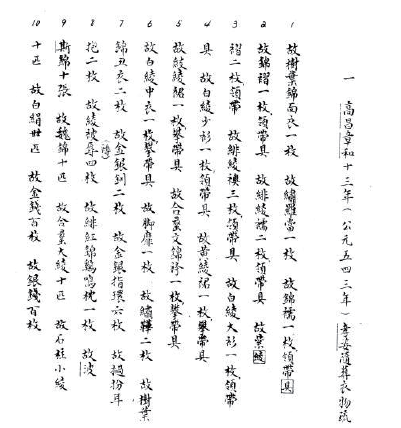 一 高昌章和十三年(公元五四三年)孝姿隨葬衣物疏
1 故樹葉錦面衣一枚 故繡羅當一枚 故錦襦一枚,領帶具
2 故錦褶一枚領帶具 故緋綾襦二枚,領帶具 故紫綾
3 褶二枚,領帶 故緋綾襖三枚,領帶具 故白綾大衫一枚,領帶
4 具 故白綾少衫一枚,領帶具 故黃綾裙一枚,攀帶具
5 故綾裙一枚,攀帶具 故合蠡文錦袴一枚,攀帶具
6 故白綾中衣一枚,攀帶具 故脚靡一枚 故繡鞾二枚 故樹葉
7 錦丑衣二枚 故金銀釧二枚 故金銀指環六枚 故搊扮耳
8 抱二枚 故綾被辱(褥)四枚 故緋紅錦鷄鳴枕一枚 故波
9 斯錦十張 故魏錦十匹 故合蠡大綾十匹 故石柱小綾
10 十匹 故白絹卌匹 故金錢百枚 故銀錢百枚